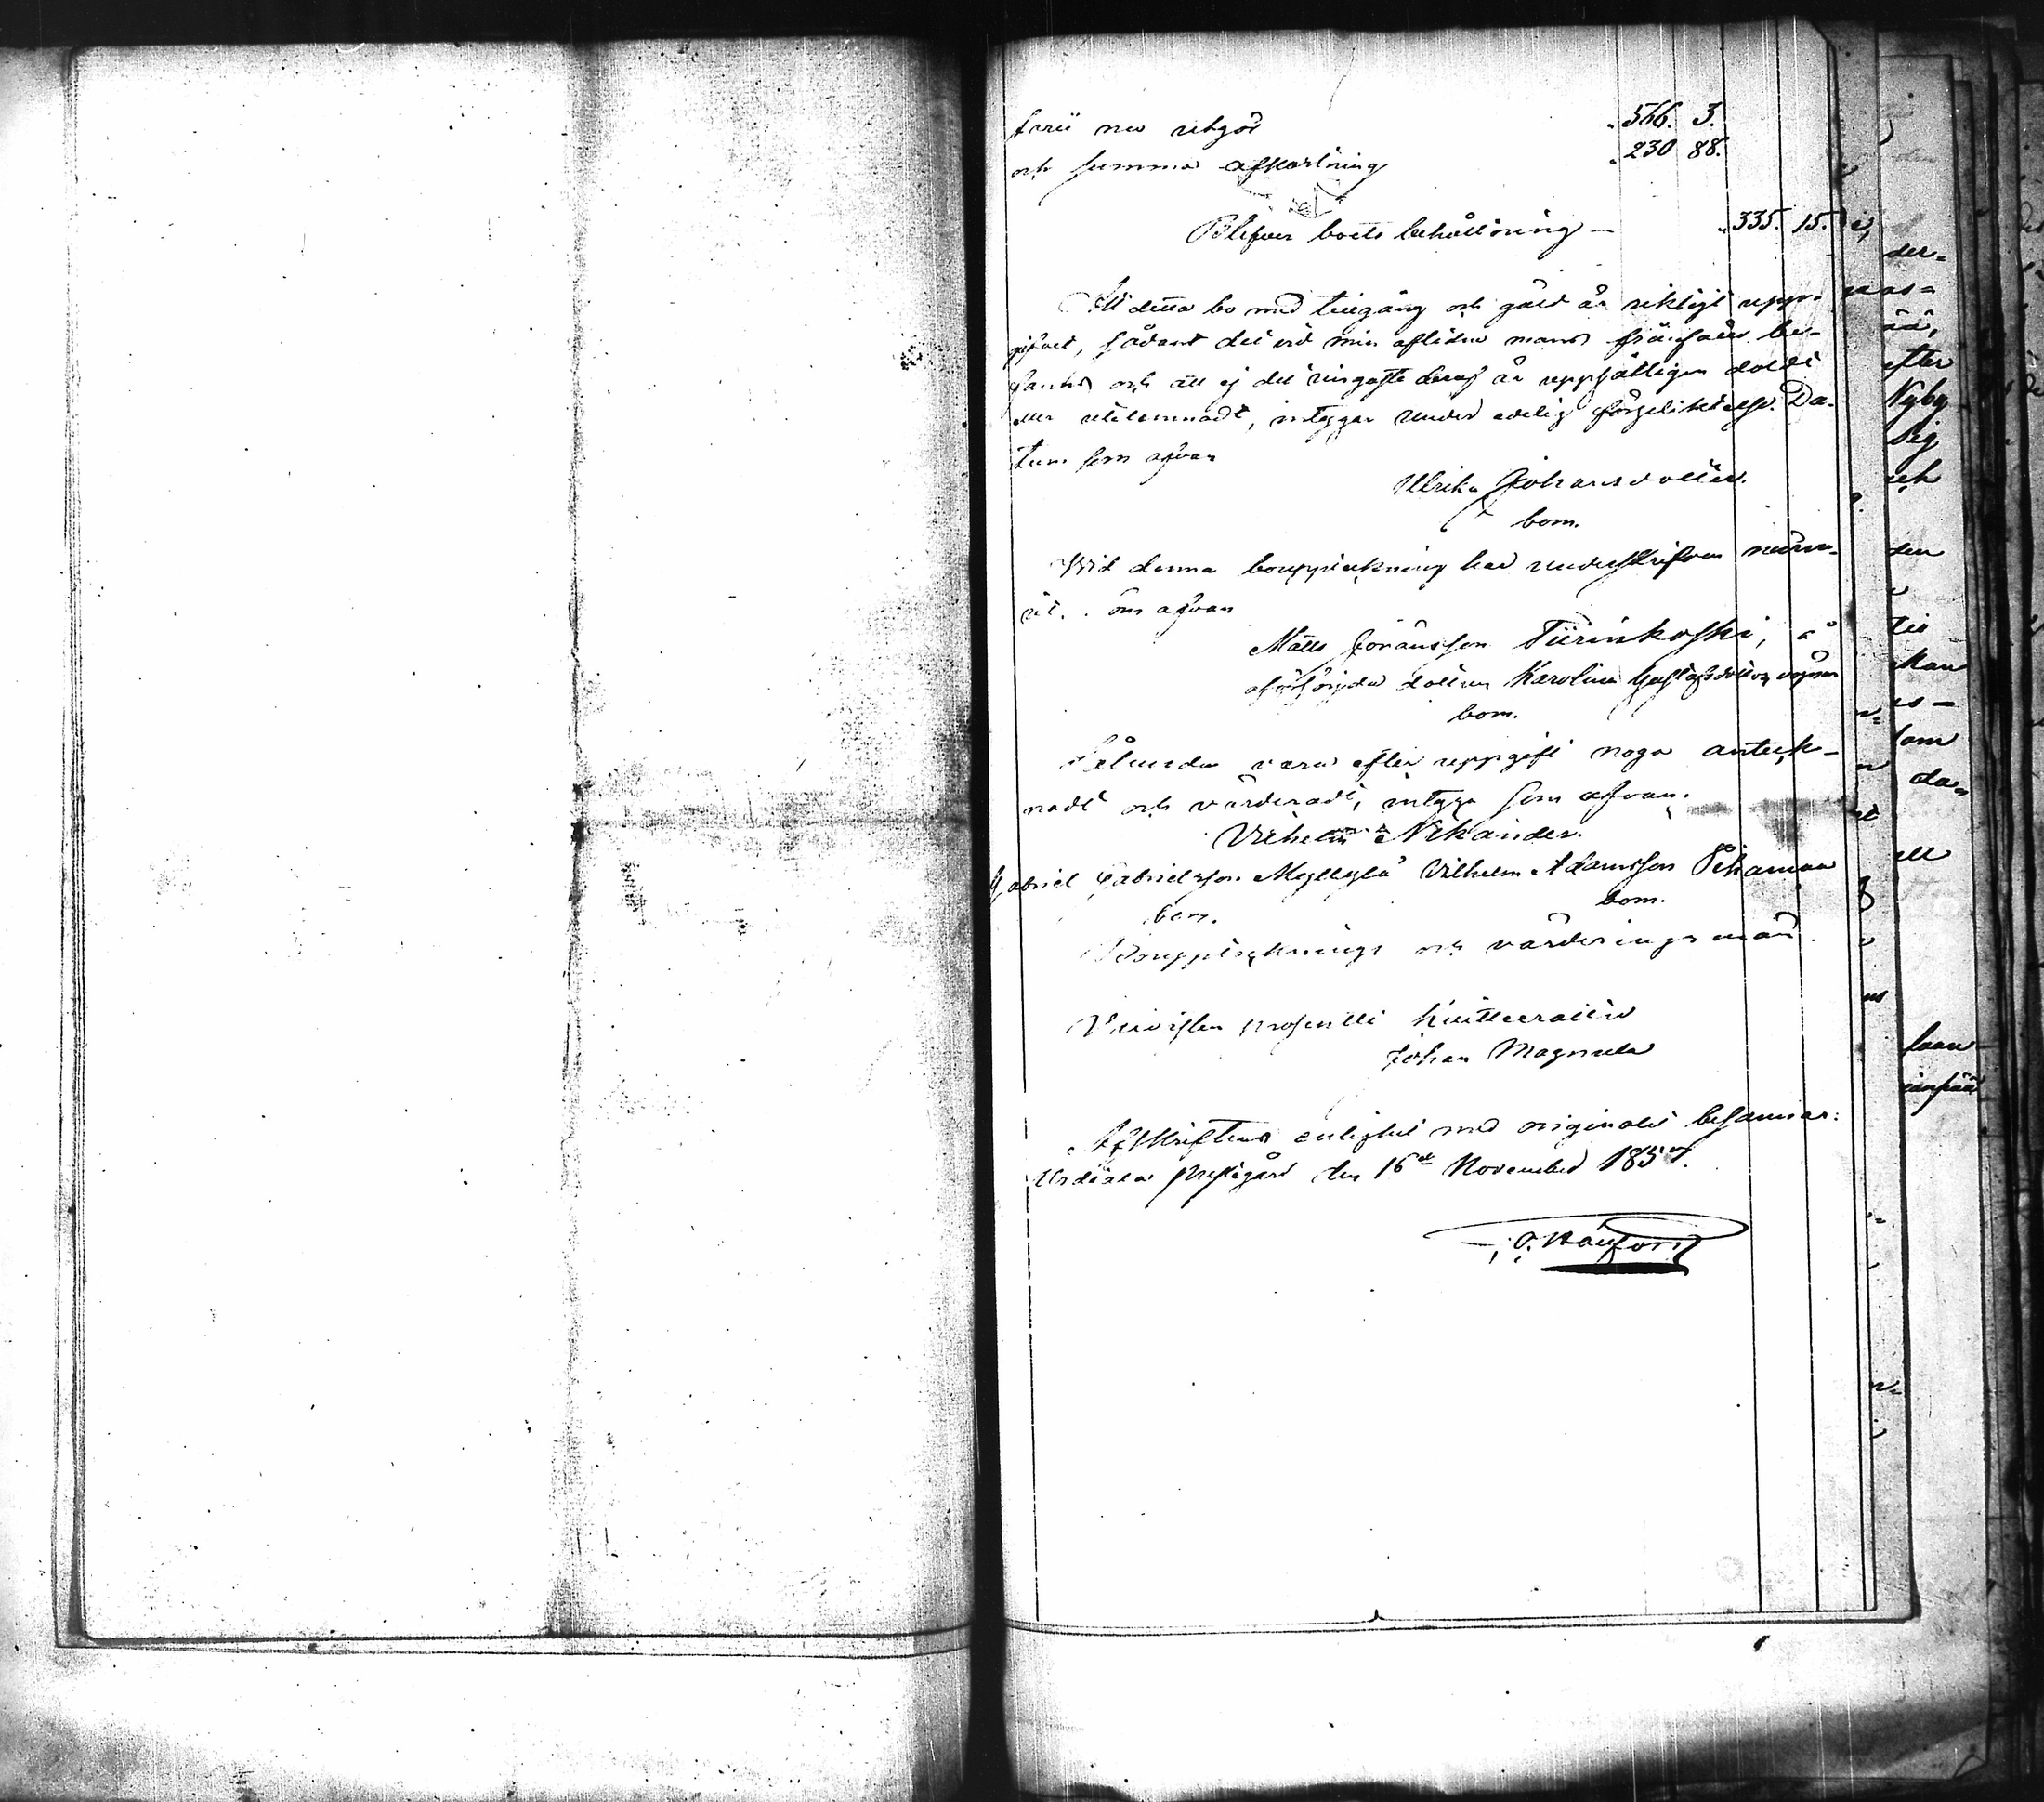 tarii nu utgör " 566. 3.
och summa afkortning " 230 88.
Blifver boets behållning — " 335. 15.
At detta bo med tillgång och gäld är riktigt upp-
gifvet, sådant det vid min aflidne mans frånfälle be-
fanns och att ej det ringaste deraf är uppsåtligen doldt
eller utelemnadt, intygar under edelig förpliktelse. Da-
tum som ofvan
Ulrika Johansdotter.
bom.
Wid denna bouppteckning har undertskrifven närva-
rit. som ofvan
Matts Johansson Tiirinkoski, å
oförsörjda dottren Karolina Gustafsdotters vägnar
bom.
Sålunda vara efter uppgift noga anteck-
nadt och värderadt, intyga som ofvan.
Vilhelm Nikander.
Gabriel Gabrielsson Myllylä Vilhelm Adamsson Pihaman
bom. bom.
Bouppteknings och värderingsmän.
Vaivaisten prosentti kuitteerattu
Johan Magnula
Afskriftens enlighet med originalet besannar:
Urdiala Prestgård den 16de November 1857.